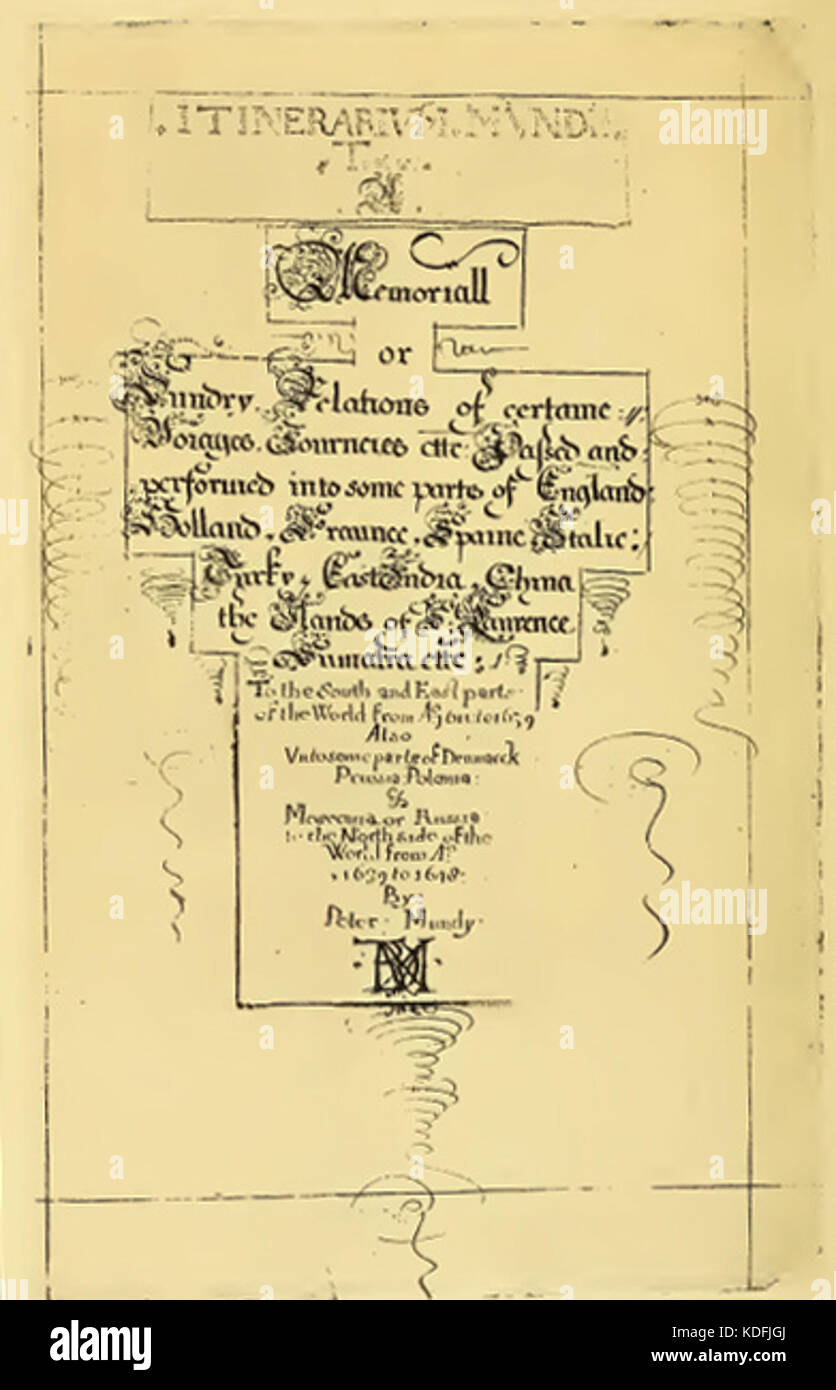 ITINERARIUM MUNDII
A
Memoriall
or
Sundry Relations of certaine
Voiages Journeies ettc Passed and
performed into some parts of England
Holland Fraunce Spaine Italie
Turky East India China
the Ilands of St Laurence
Sumatra ettc:
To the South and East parts
of the World from Ao 1611 to 1639
Also
Unto some parts of Denmarck
Prussia Polonia
&
Moscovia or Russia
to the North side of the
World from Ao
1639 to 1648
By
Peter Mundy
alamy
a
Image ID: KDFJGJ
www.alamy.com